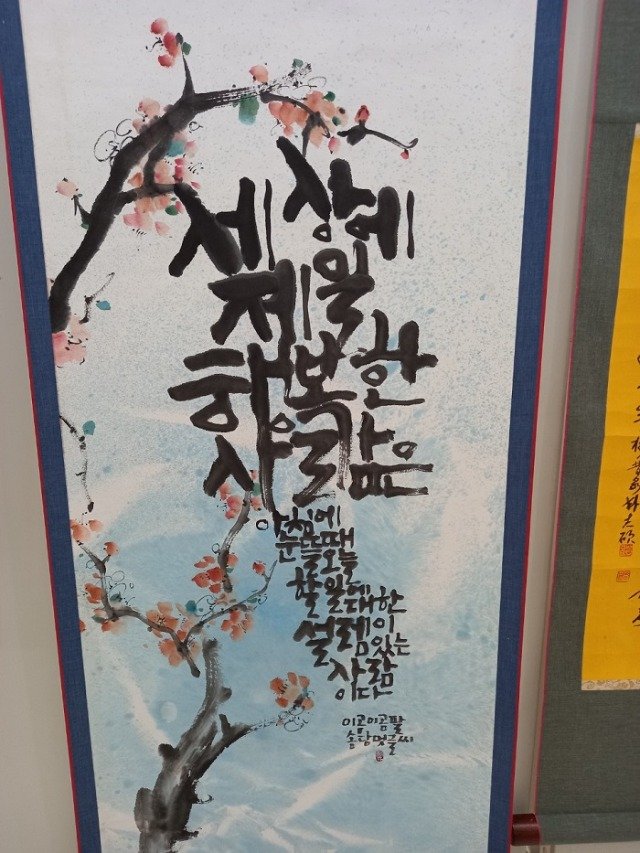 세상에
제일
행복한
사람은
아침에
눈뜰때 오늘
할 일에 대한
설렘이 있는
사람이다
이공이공팔
멋글씨